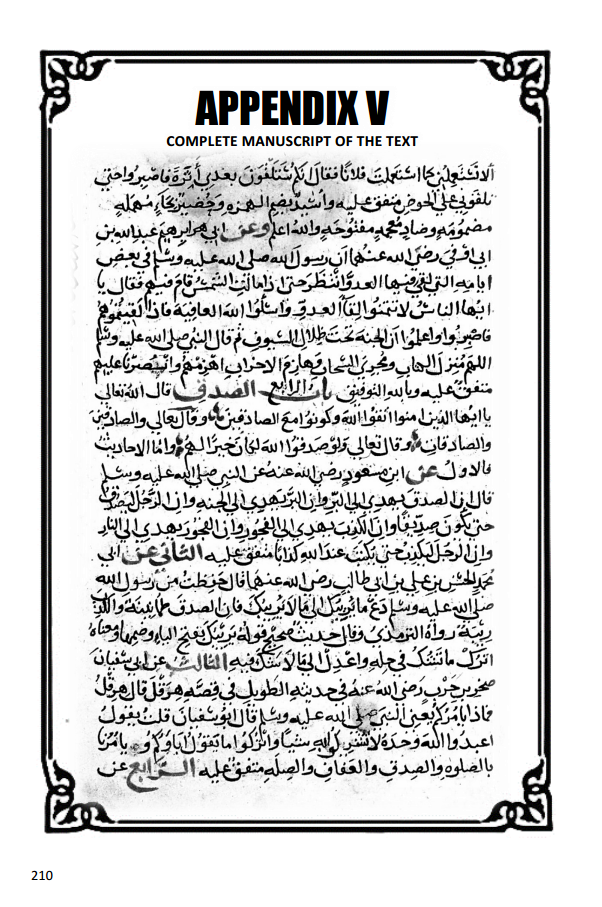 APPENDIX V
COMPLETE MANUSCRIPT OF THE TEXT
ألا تستعملني كما استعملت فلانا فقال انكم ستلقون بعدي أثرة فاصبروا حتى
تلقوني على الحوض متفق عليه وأسيد بضم الهمزه وحضير بحاء مهمله
مضمومه وضاد معجمه مفتوحه والله اعلم وعن ابي ابراهيم عبد الله بن
ابي اوفى رضي الله عنهما ان رسول الله صلى الله عليه وسلم في بعض
ايامه التي لقي فيها العدو انتظر حتى اذا مالت الشمس قام فيهم فقال يا
ايها الناس لا تتمنوا لقاء العدو واسئلوا الله العافية فاذا لقيتموهم
فاصبروا واعلموا ان الجنه تحت ظلال السيوف ثم قال النبي صلى الله عليه وسلم
اللهم منزل الكتاب ومجري السحاب وهازم الاحزاب اهزمهم وانصرنا عليهم
متفق عليه وبالله التوفيق باب الرابع الصدق قال الله تعالى
يا ايها الذين امنوا اتقوا الله وكونوا مع الصادقين وقال تعالى والصادقين
والصادقات وقال تعالى ولو صدقوا الله لكان خيرا لهم واما الاحاديث
فالاول عن ابن مسعود رضي الله عنه عن النبي صلى الله عليه وسلم
قال ان الصدق يهدي الى البر وان البر يهدي الى الجنه وان الرجل ليصدق
حتى يكون صديقا وان الكذب يهدي الى الفجور وان الفجور يهدي الى النار
وان الرجل ليكذب حتى يكتب عند الله كذابا متفق عليه الثاني عن ابي
محمد الحسن بن علي بن ابي طالب رضي الله عنهما قال حفظت من رسول الله
صلى الله عليه وسلم دع ما يريبك الى ما لا يريبك فان الصدق طمانينة والكذب
ريبة رواه الترمذي وقال حديث صحيح قوله يريبك بفتح الياء وضمها ومعناه
اترك ما تشك في حله واعدل الى ما لا تشك فيه الثالث عن ابي سفيان
صخر بن حرب رضي الله عنه في حديثه الطويل في قصه هرقل قال هرقل
فماذا يامركم يعني النبي صلى الله عليه وسلم قال ابو سفيان قلت يقول
اعبدوا الله وحده لا تشركوا به شيا واتركوا ما يقول اباوكم ويامرنا
بالصلوه والصدق والعفاف والصله متفق عليه الرابع عن
210